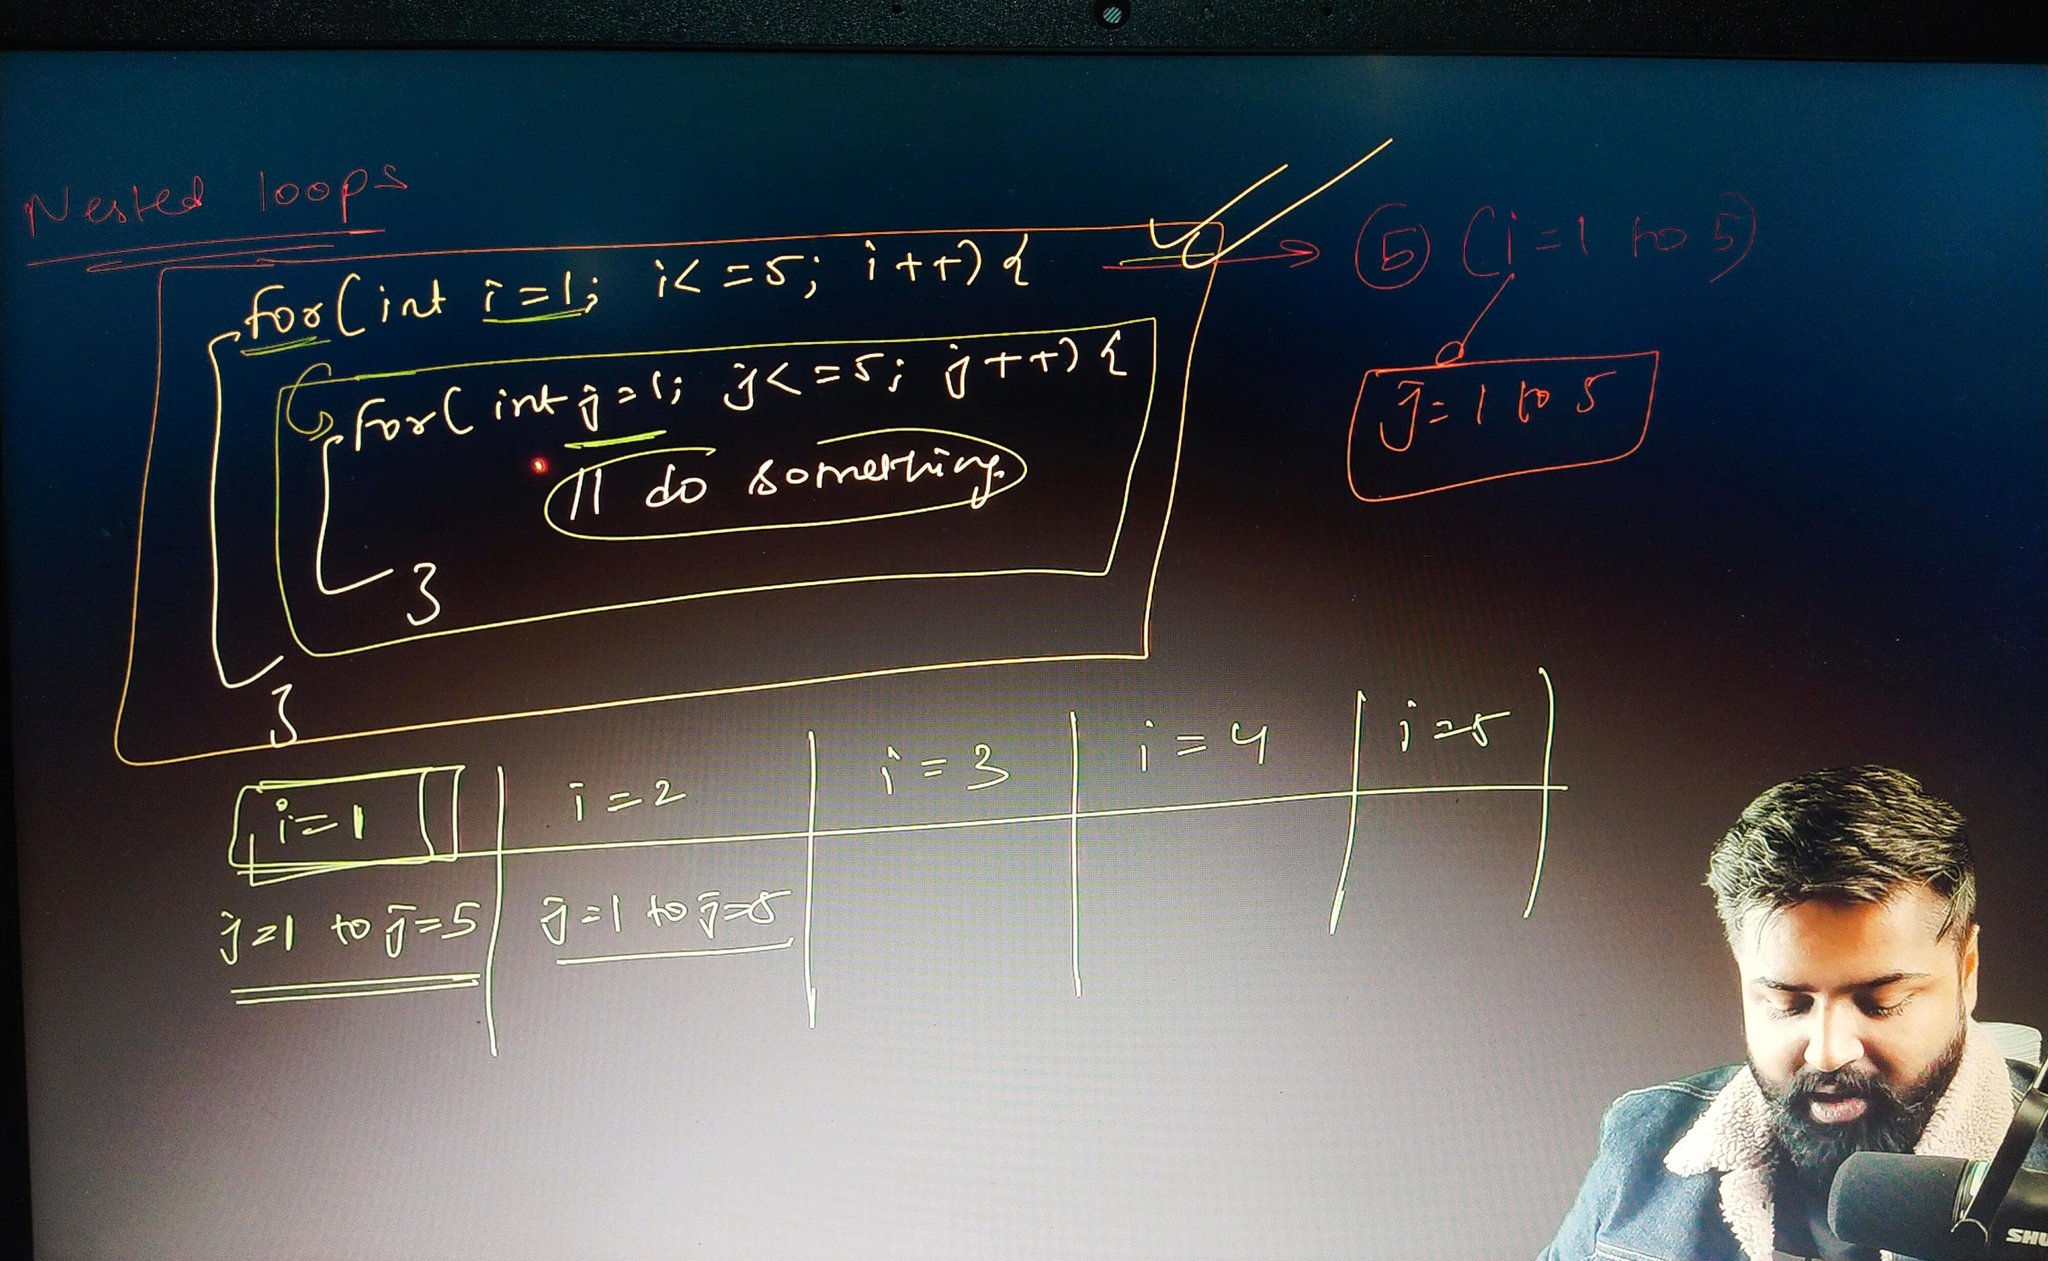 Nested loops
for(int i=1; i<=5; i++){
for(int j=1; j<=5; j++){
// do something
}
}
5 (i=1 to 5)
j=1 to 5
i=1 i=2 i=3 i=4 i=5
j=1 to j=5 j=1 to j=5
SHU